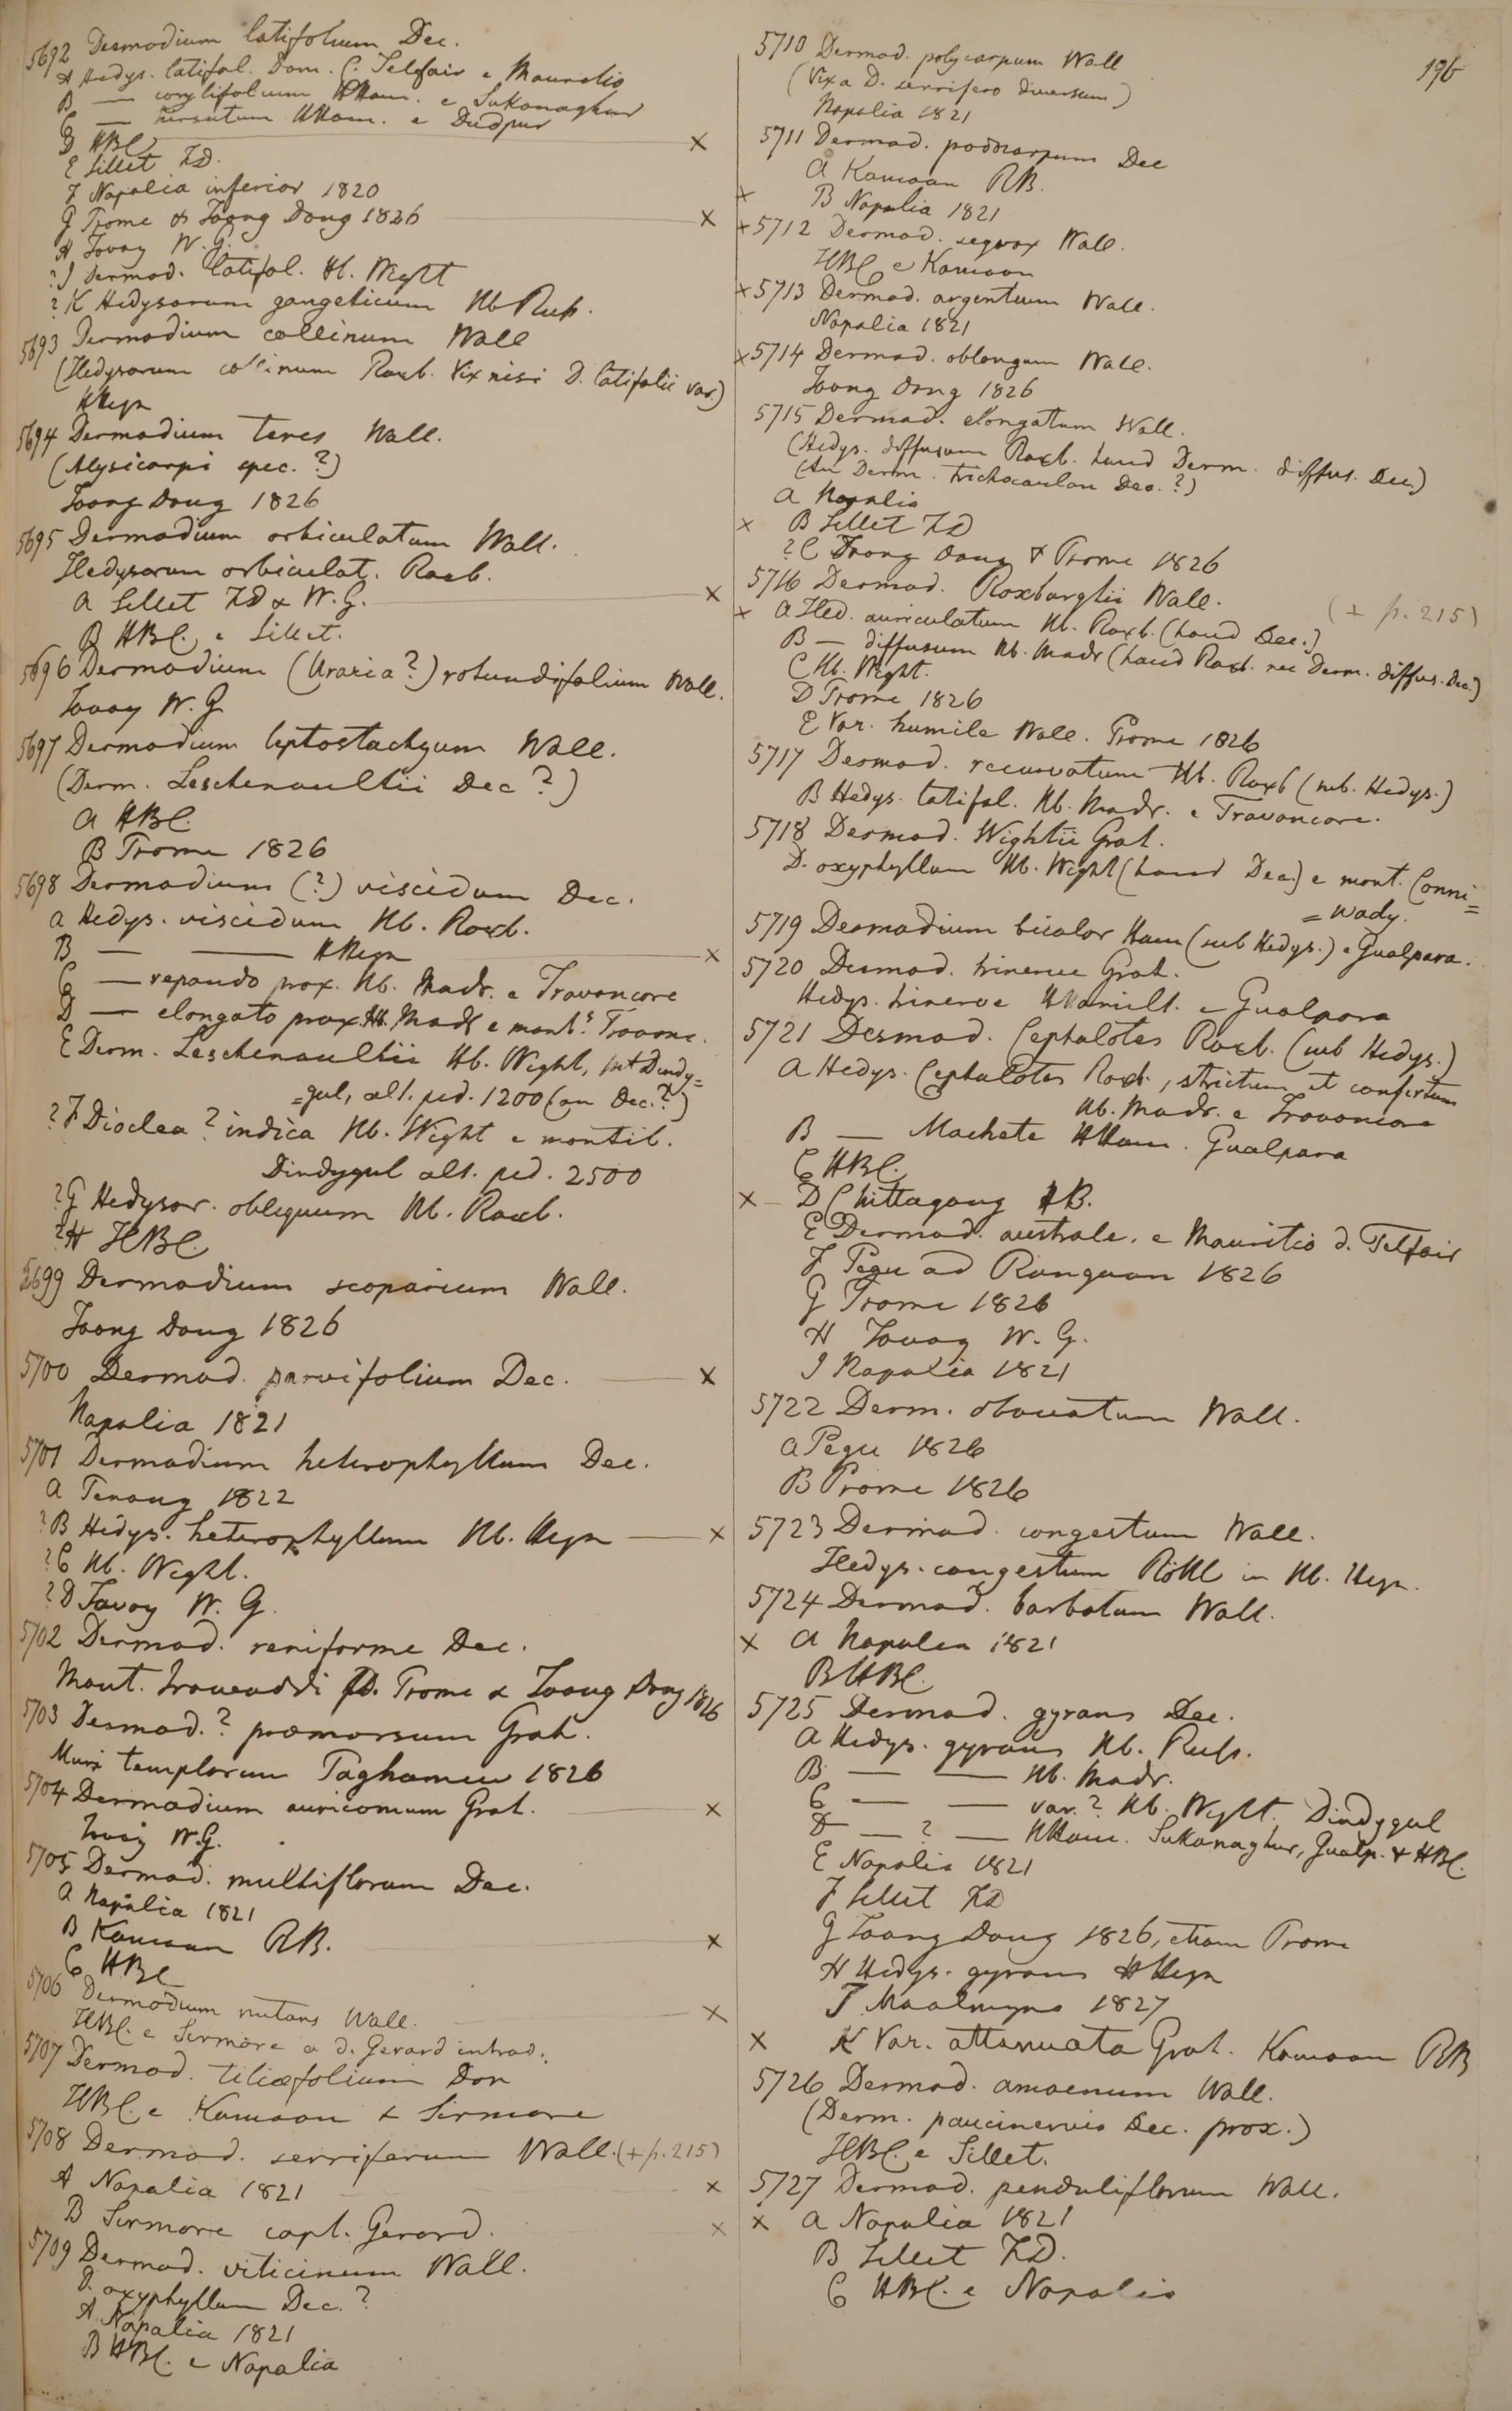 196
5692 Desmodium latifolium Dec.
A Hedys. latifol. Dom. C. Telfair e Mauritio
B — corylifolium HHam. e Sukanaghur
C — hirsutum HHam. e Dudpur
D HBC. ×
E Sillet FD.
F Napalia inferior 1820
G Prome & Taong Dong 1826 ×
H Tavoy W.G.
? I Desmod. latifol. Hb. Wight
? K Hedysarum gangeticum Hb Russ.
5693 Desmodium collinum Wall
(Hedysarum collinum Roxb. Vix nisi D. latifolii var.)
HHeyn
5694 Desmodium teres Wall.
(Alysicarpi spec. ?)
Taong Dong 1826
5695 Desmodium orbiculatum Wall.
Hedysarum orbiculat. Roxb.
A Sillet FD & W.G. ×
B HBC. e Sillet.
5696 Desmodium (Uraria?) rotundifolium Wall.
Tavoy W.G.
5697 Desmodium leptostachyum Wall.
(Desm. Leschenaultii Dec ?)
A HBC.
B Prome 1826
5698 Desmodium (?) viscidum Dec.
A Hedys. viscidum Hb. Roxb.
B — — HHeyn ×
C — repando prox. Hb. Madr. e Travancore
D — elongato prox. Hb. Madr e monts. Travanc.
E Desm. Leschenaultii Hb. Wight, Dindy=
=gul, alt. ped. 1200 (an Dec.?)
? F Dioclea ? indica Hb. Wight e montib.
Dindygul alt. ped. 2500
? G Hedysar. obliquum Hb. Roxb.
? H HBC.
5699 Desmodium scoparium Wall.
Taong Dong 1826
5700 Desmod. parvifolium Dec. ×
Napalia 1821
5701 Desmodium heterophyllum Dec.
A Penang 1822
? B Hedys. heterophyllum Hb. Heyn ×
? C Hb. Wight.
? D Tavoy W.G.
5702 Desmod. reniforme Dec.
Mont. Irawaddi ad. Prome & Taong Dong 1826
5703 Desmod. ? præmorsum Grah.
Muri templorum Paghamew 1826
5704 Desmodium auricomum Grah. ×
Tavoy W.G.
5705 Desmod. multiflorum Dec.
A Napalia 1821
B Kamaon RB. ×
C HBC
5706 Desmodium nutans Wall. ×
HBC. e Sirmore a d. Gerard introd.
5707 Desmod. tiliæfolium Don
HBC. e Kamaon & Sirmore
5708 Desmod. serriferum Wall. (+ p. 215)
A Napalia 1821 ×
B Sirmore capt. Gerard. ×
5709 Desmod. viticinum Wall.
D. oxyphyllum Dec. ?
A Napalia 1821
B HBC. e Napalia
5710 Desmod. polycarpum Wall
(Vix a D. serrifero diversum)
Napalia 1821
5711 Desmod. podocarpum Dec
A Kamaon RB.
× B Napalia 1821
× 5712 Desmod. sequax Wall.
HBC e Kamaon
× 5713 Desmod. argenteum Wall.
Napalia 1821
× 5714 Desmod. oblongum Wall.
Taong Dong 1826
5715 Desmod. elongatum Wall.
(Hedys. diffusum Roxb. haud Desm. diffus. Dec.)
(An Desm. trichocaulon Dec. ?)
A Napalia
× B Sillet FD
? C Taong Dong & Prome 1826
5716 Desmod. Roxburghii Wall. (+ p. 215)
× A Hed. auriculatum Hb. Roxb. (haud Dec.)
B — diffusum Hb. Madr (haud Roxb. nec Desm. diffus. Dec.)
C Hb. Wight.
D Prome 1826
E Var. humile Wall. Prome 1826
5717 Desmod. recurvatum Hb. Roxb (sub. Hedys.)
B Hedys. latifol. Hb. Madr. e Travancore.
5718 Desmod. Wightii Grah.
D. oxyphyllum Hb. Wight (haud Dec.) e mont. Conni=
=wady.
5719 Desmodium bicolor Ham (sub Hedys.) e Gualpara.
5720 Desmod. trinerve Grah.
Hedys. trinerve HHamilt. e Gualpara
5721 Desmod. Cephalotes Roxb. (sub Hedys.)
A Hedys. Cephalotes Roxb., strictum et confertum
Hb. Madr. e Travancore
B — Machete HHam. Gualpara
C HBC.
× D Chittagong HB.
E Desmod. australe. e Mauritio d. Telfair
F Pegu ad Rangoon 1826
G Prome 1826
H Tavoy W.G.
I Napalia 1821
5722 Desm. obovatum Wall.
A Pegu 1826
B Prome 1826
5723 Desmod. congestum Wall.
Hedys. congestum Röttl in Hb. Heyn.
5724 Desmod. barbatum Wall.
× A Napalia 1821
B HBC.
5725 Desmod. gyrans Dec.
A Hedys. gyrans Hb. Russ.
B — — Hb. Madr.
C — — var. ? Hb. Wight. Dindygul
D — ? — HHam. Sukanaghur, Gualp. & HBC.
E Napalia 1821
F Sillet FD
G Taong Dong 1826, etiam Prome
H Hedys. gyrans HHeyn
I Moalmyne 1827
× K Var. attenuata Grah. Kamaon RB
5726 Desmod. amoenum Wall.
(Desm. paucinervio Dec. prox.)
HBC. e Sillet.
5727 Desmod. penduliflorum Wall.
× A Napalia 1821
B Sillet FD.
C HBC. e Napalia